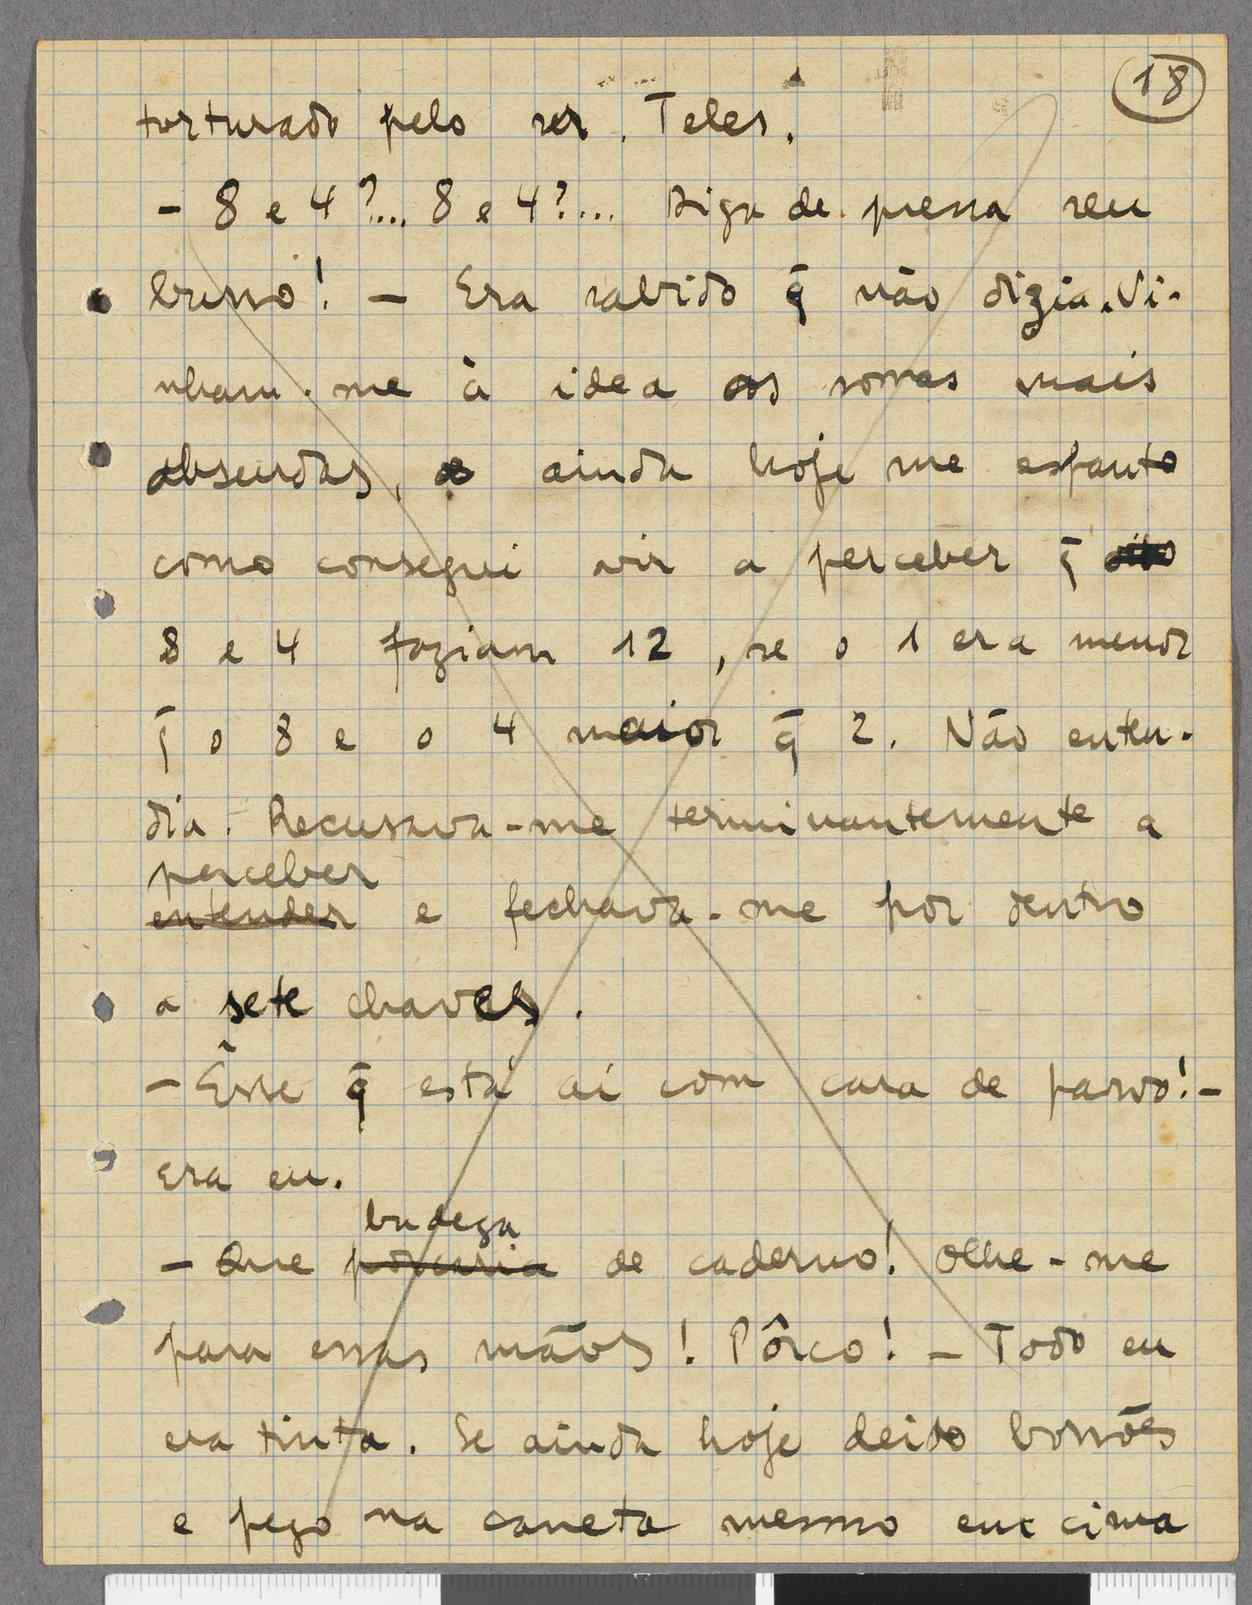 18
torturado pelo snr. Teles.
- 8 e 4?... 8 e 4?... Diga de pressa seu
burro! - Era sabido q̄ não dizia. Vi-
nham-me à idea as somas mais
absurdas, e ainda hoje me espanto
como consegui vir a perceber q̄
8 e 4 faziam 12, se o 1 era menor
q̄ o 8 e o 4 maior q̄ 2. Não enten-
dia. Recusava-me terminantemente a
perceber
entender e fechava-me por dentro
a sete chaves.
- Êsse q̄ está aí com cara de parvo! -
era eu.
budega
- Que porcaria de caderno! Olhe-me
para essas mãos! Pôrco! - Todo eu
era tinta. Se ainda hoje deito borrões
e pego na caneta mesmo em cima